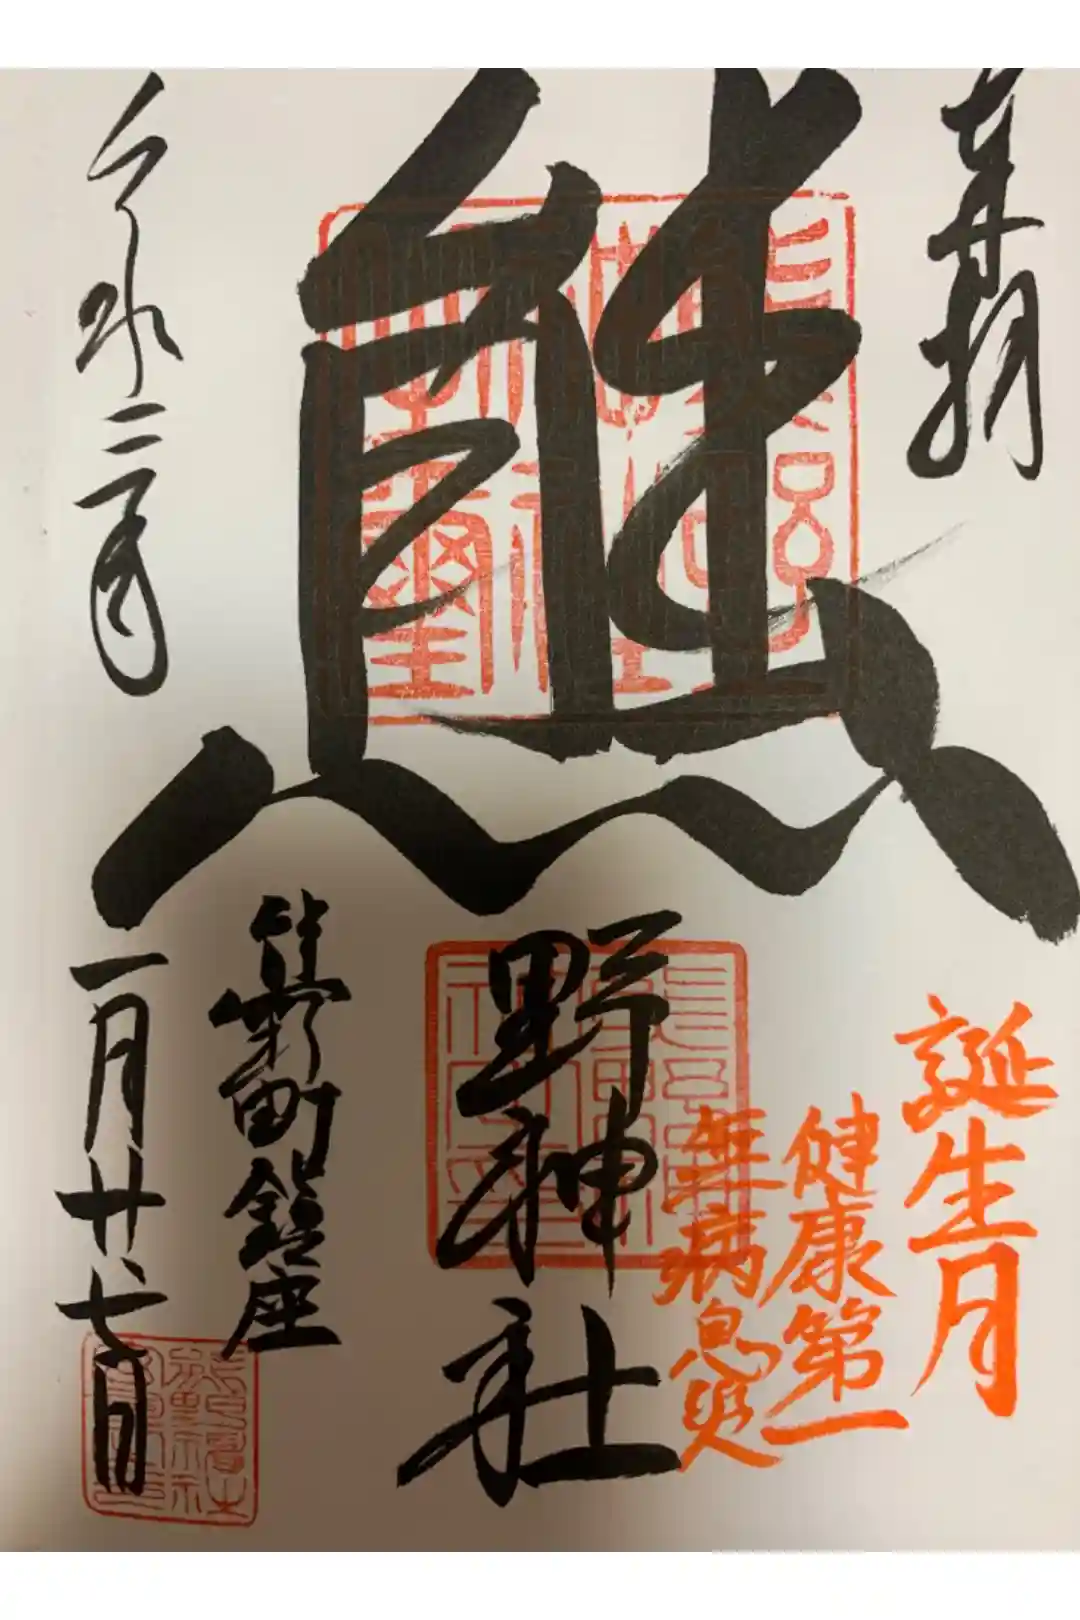 奉拝
誕生月
健康第一
無病息災
熊野神社
町鎮座
令和二年
一月廿七日